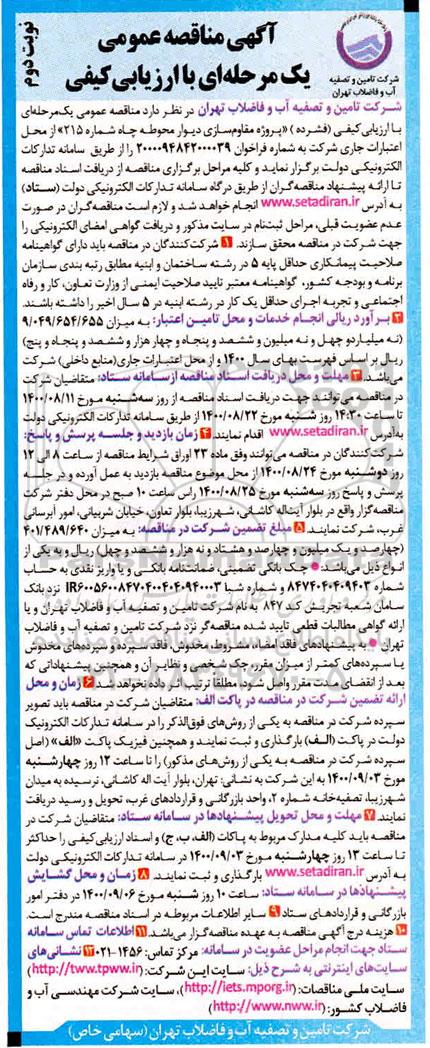 نوبت دوم
آگهی مناقصه عمومی
یک مرحله‌ای با ارزیابی کیفی
شرکت تامین و تصفیه
آب و فاضلاب تهران
شرکت تامین و تصفیه آب و فاضلاب تهران در نظر دارد مناقصه عمومی یک‌مرحله‌ای
با ارزیابی کیفی (فشرده) «پروژه مقاوم‌سازی دیوار محوطه چاه شماره ۲۱۵» از محل
اعتبارات جاری شرکت به شماره فراخوان ۲۰۰۰۰۹۴۸۴۲۰۰۰۰۳۹ را از طریق سامانه تدارکات
الکترونیکی دولت برگزار نماید و کلیه مراحل برگزاری مناقصه از دریافت اسناد مناقصه
تا ارائه پیشنهاد مناقصه‌گران از طریق درگاه سامانه تدارکات الکترونیکی دولت (ستاد)
به آدرس www.setadiran.ir انجام خواهد شد و لازم است مناقصه‌گران در صورت
عدم عضویت قبلی، مراحل ثبت‌نام در سایت مذکور و دریافت گواهی امضای الکترونیکی را
جهت شرکت در مناقصه محقق سازند. ۱ شرکت‌کنندگان در مناقصه باید دارای گواهینامه
صلاحیت پیمانکاری حداقل پایه ۵ در رشته ساختمان و ابنیه مطابق رتبه بندی سازمان
برنامه و بودجه کشور، گواهینامه معتبر تایید صلاحیت ایمنی از وزارت تعاون، کار و رفاه
اجتماعی و تجربه اجرای حداقل یک کار در رشته ابنیه در ۵ سال اخیر را داشته باشند.
۲ برآورد ریالی انجام خدمات و محل تامین اعتبار: به میزان ۹/۰۴۹/۶۵۴/۶۵۵
(نه میلیارد و چهل و نه میلیون و ششصد و پنجاه و چهار هزار و ششصد و پنجاه و پنج)
ریال بر اساس فهرست بهای سال ۱۴۰۰ و از محل اعتبارات جاری (منابع داخلی) شرکت
می‌باشد. ۳ مهلت و محل دریافت اسناد مناقصه از سامانه ستاد: متقاضیان شرکت
در مناقصه می‌توانند جهت دریافت اسناد مناقصه از روز سه‌شنبه مورخ ۱۴۰۰/۰۸/۱۱
تا ساعت ۱۴:۳۰ روز شنبه مورخ ۱۴۰۰/۰۸/۲۲ از طریق سامانه تدارکات الکترونیکی دولت
به‌آدرس www.setadiran.ir اقدام نمایند. ۴ زمان بازدید و جلسه پرسش و پاسخ:
شرکت‌کنندگان در مناقصه می‌توانند وفق ماده ۲۳ اوراق شرایط مناقصه از ساعت ۸ الی ۱۲
روز دوشنبه مورخ ۱۴۰۰/۰۸/۲۴ از محل موضوع مناقصه بازدید به عمل آورده و در جلسه
پرسش و پاسخ روز سه‌شنبه مورخ ۱۴۰۰/۰۸/۲۵ راس ساعت ۱۰ صبح در محل دفتر شرکت
مناقصه‌گزار واقع در بلوار آیت‌اله کاشانی، شهرزیبا، بلوار تعاون، خیابان شربیانی، امور آبرسانی
غرب، شرکت نمایند. ۵ مبلغ تضمین شرکت در مناقصه: به میزان ۴۰۱/۴۸۹/۶۴۰
(چهارصد و یک میلیون و چهارصد و هشتاد و نه هزار و ششصد و چهل) ریال و به یکی از
انواع ذیل می‌باشد: چک بانکی تضمینی، ضمانت‌نامه بانکی و یا واریز نقدی به حساب
شماره ۸۴۷۴۰۴۰۴۰۹۴۰۳ و شماره شبا IR۶۰۰۵۶۰۰۸۴۷۰۴۰۰۴۰۴۰۹۴۰۰۳ نزد بانک
سامان شعبه تجریش کد ۸۴۷ به نام شرکت تامین و تصفیه آب و فاضلاب تهران و یا
ارائه گواهی مطالبات قطعی تایید شده مناقصه‌گر نزد شرکت تامین و تصفیه آب و فاضلاب
تهران به پیشنهادهای فاقد امضاء، مشروط، مخدوش، فاقد سپرده و سپرده‌های مخدوش
یا سپرده‌های کمتر از میزان مقرر، چک شخصی و نظایر آن و همچنین پیشنهاداتی که
بعد از انقضای مدت مقرر واصل شود، مطلقاً ترتیب اثر داده نخواهد شد ۶ زمان و محل
ارائه تضمین شرکت در مناقصه در پاکت الف: متقاضیان شرکت در مناقصه باید تصویر
سپرده شرکت در مناقصه به یکی از روش‌های فوق‌الذکر را در سامانه تدارکات الکترونیک
دولت در پاکت (الف) بارگذاری و ثبت نمایند و همچنین فیزیک پاکت «الف» (اصل
سپرده شرکت در مناقصه به یکی از روش‌های مذکور) را تا ساعت ۱۲ روز چهارشنبه
مورخ ۱۴۰۰/۰۹/۰۳ به این شرکت به نشانی: تهران، بلوار آیت اله کاشانی، نرسیده به میدان
شهرزیبا، تصفیه‌خانه شماره ۲، واحد بازرگانی و قراردادهای غرب، تحویل و رسید دریافت
نمایند. ۷ مهلت و محل تحویل پیشنهادها در سامانه ستاد: متقاضیان شرکت در
مناقصه باید کلیه مدارک مربوط به پاکات (الف، ب، ج) و اسناد ارزیابی کیفی را حداکثر
تا ساعت ۱۳ روز چهارشنبه مورخ ۱۴۰۰/۰۹/۰۳ در سامانه تدارکات الکترونیکی دولت
به آدرس www.setadiran.ir بارگذاری و ثبت نمایند. ۸ زمان و محل گشایش
پیشنهادها در سامانه ستاد: ساعت ۱۰ روز شنبه مورخ ۱۴۰۰/۰۹/۰۶ در دفتر امور
بازرگانی و قراردادهای ستاد ۹ سایر اطلاعات مربوطه در اسناد مناقصه مندرج است.
۱۰ هزینه درج آگهی مناقصه به عهده مناقصه‌گزار می‌باشد. ۱۱ اطلاعات تماس سامانه
ستاد جهت انجام مراحل عضویت در سامانه: مرکز تماس: ۱۴۵۶-۰۲۱ ۱۲ نشانی‌های
سایت‌های اینترنتی به شرح ذیل: سایت این شرکت: (http://tww.tpww.ir)
سایت ملی مناقصات: (http://iets.mporg.ir)، سایت شرکت مهندسی آب و
فاضلاب کشور: (http://www.nww.ir)
شرکت تامین و تصفیه آب و فاضلاب تهران (سهامی خاص)